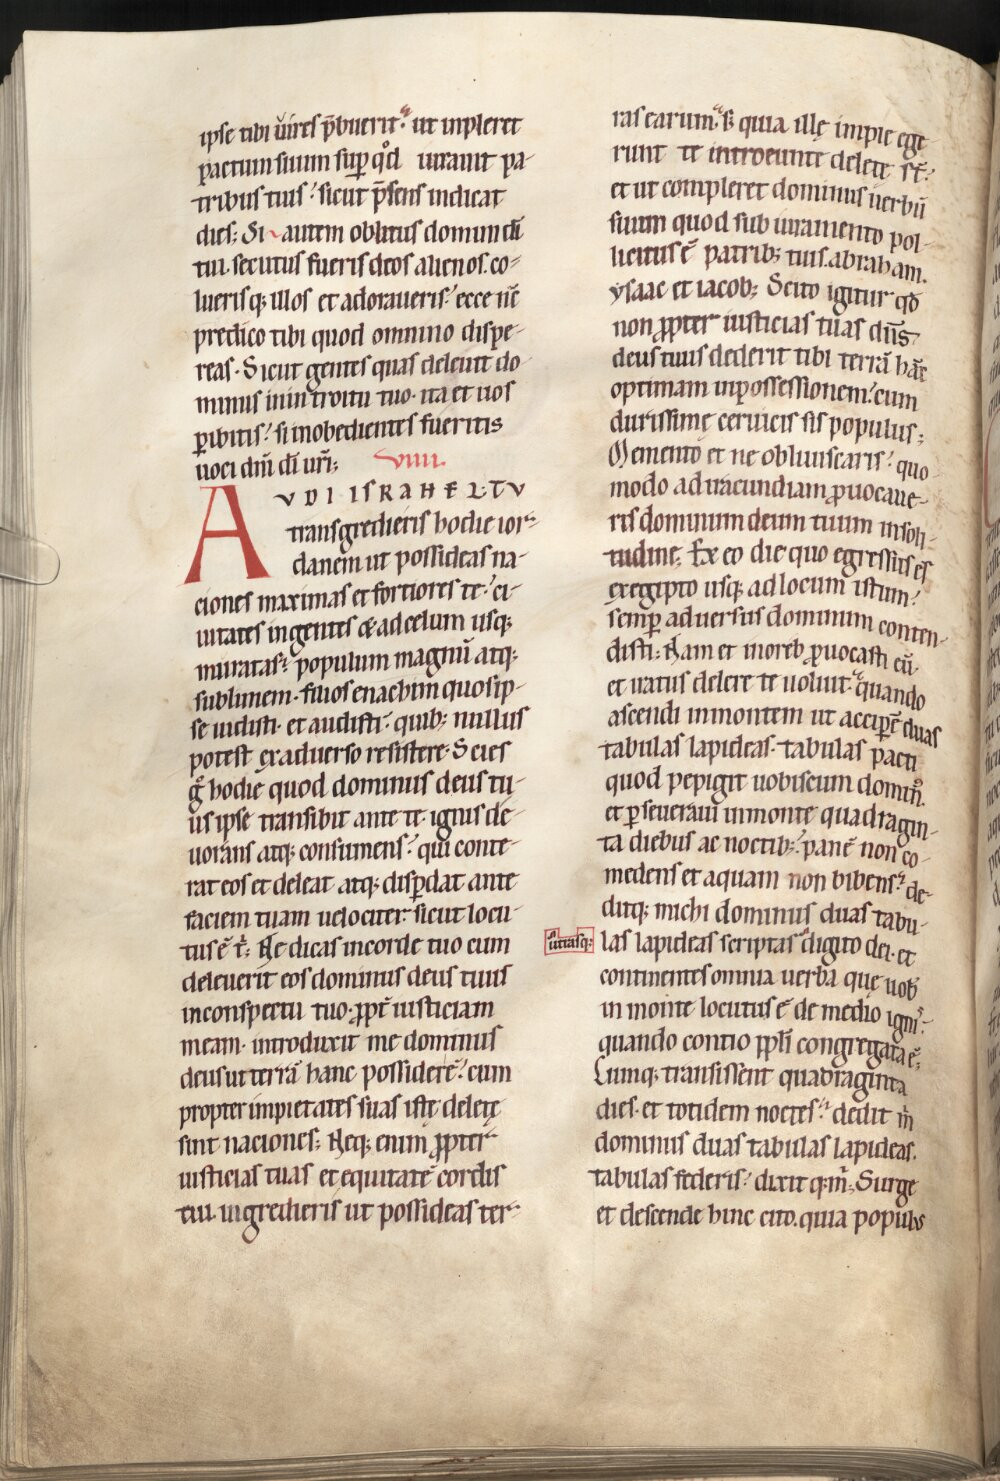 ipse tibi uires p̄buerit. ut inpleret
pactum suum sup̱ qđ iurauit pa-
tribus tuis. sicut p̄sens indicat
dies; Si autem oblitus domini dī
tui. secutus fueris deos alienos. co-
lueris q; illos et adoraueris. ecce nc̄
predico tibi quod omnino dispe-
reas. Sicut gentes quas deleuit do-
minus in introitu tuo. ita et uos
p̱ibitis. si inobedientes fueritis
uoci dn̄i dī ur̄i;
VIIII.
AVDI ISRAHEL TV
transgredieris hodie ior-
danem ut possideas na-
ciones maximas et fortiores te. ci-
uitates ingentes & ad celum usq;
muratas. populum magnū atq;
sublimem. filios enachim quos ip-
se uidisti. et audisti. quib; nullus
potest ex aduerso resistere. Scies
g̊ hodie quod dominus deus tu-
us ipse transibit ante te. ignis de-
uorans atq; consumens. qui conte-
rat eos et deleat atq; disp̱dat ante
faciem tuam uelociter sicut locu-
tus ē t̄. Ne dicas in corde tuo cum
deleuerit eos dominus deus tuus
in conspectu tuo. ꝓpt̄ iusticiam
meam. introduxit me dominus
deus ut terrā hanc possiderē. cum
propter impietates suas istę deletę
sint naciones; Neq; enim ꝓpter
iusticias tuas et equitatē cordis
tui. ingredieris ut possideas ter-
ras earum. s; quia illę impie ege
runt te introeunte deletę st̄.
et ut compleret dominus uerbū
suum quod sub iuramento pol-
licitus ē patrib; tuis. abraham.
ysaac et iacob; Scito igitur qđ
non ꝓpter iusticias tuas dn̄s
deus tuus dederit tibi terrā hāc
optimam in possessionem. cum
durissimę ceruicis sis populus;
Memento et ne obliuiscaris. quo
modo ad iracundiam ꝓuocaue-
ris dominum deum tuum in soli-
tudine. Ex eo die quo egressus es
ex egipto usq; ad locum istum.
semp̱ aduersus dominum conten-
disti; Nam et in oreb ꝓuocasti eū.
et iratus delere te uoluit. quando
ascendi in montem ut accip̱ē duas
tabulas lapideas. tabulas pacti
quod pepigit uobiscum domin̄.
et p̱seueraui in monte quadragin-
ta diebus ac noctib;. panē non co-
medens et aquam non bibens. de-
ditq; michi dominus duas tabu-
utrasq;
las lapideas scriptas digito dei. et
continentes omnia uerba que uob̄
in monte locutus ē de medio igni.
quando contio ppl̄i congregata ē;
Cumq; transissent quadraginta
dies. et totidem noctes. dedit m̄
dominus duas tabulas lapideas.
tabulas federis. dixit q; m̄; Surge
et descende hinc cito. quia populus